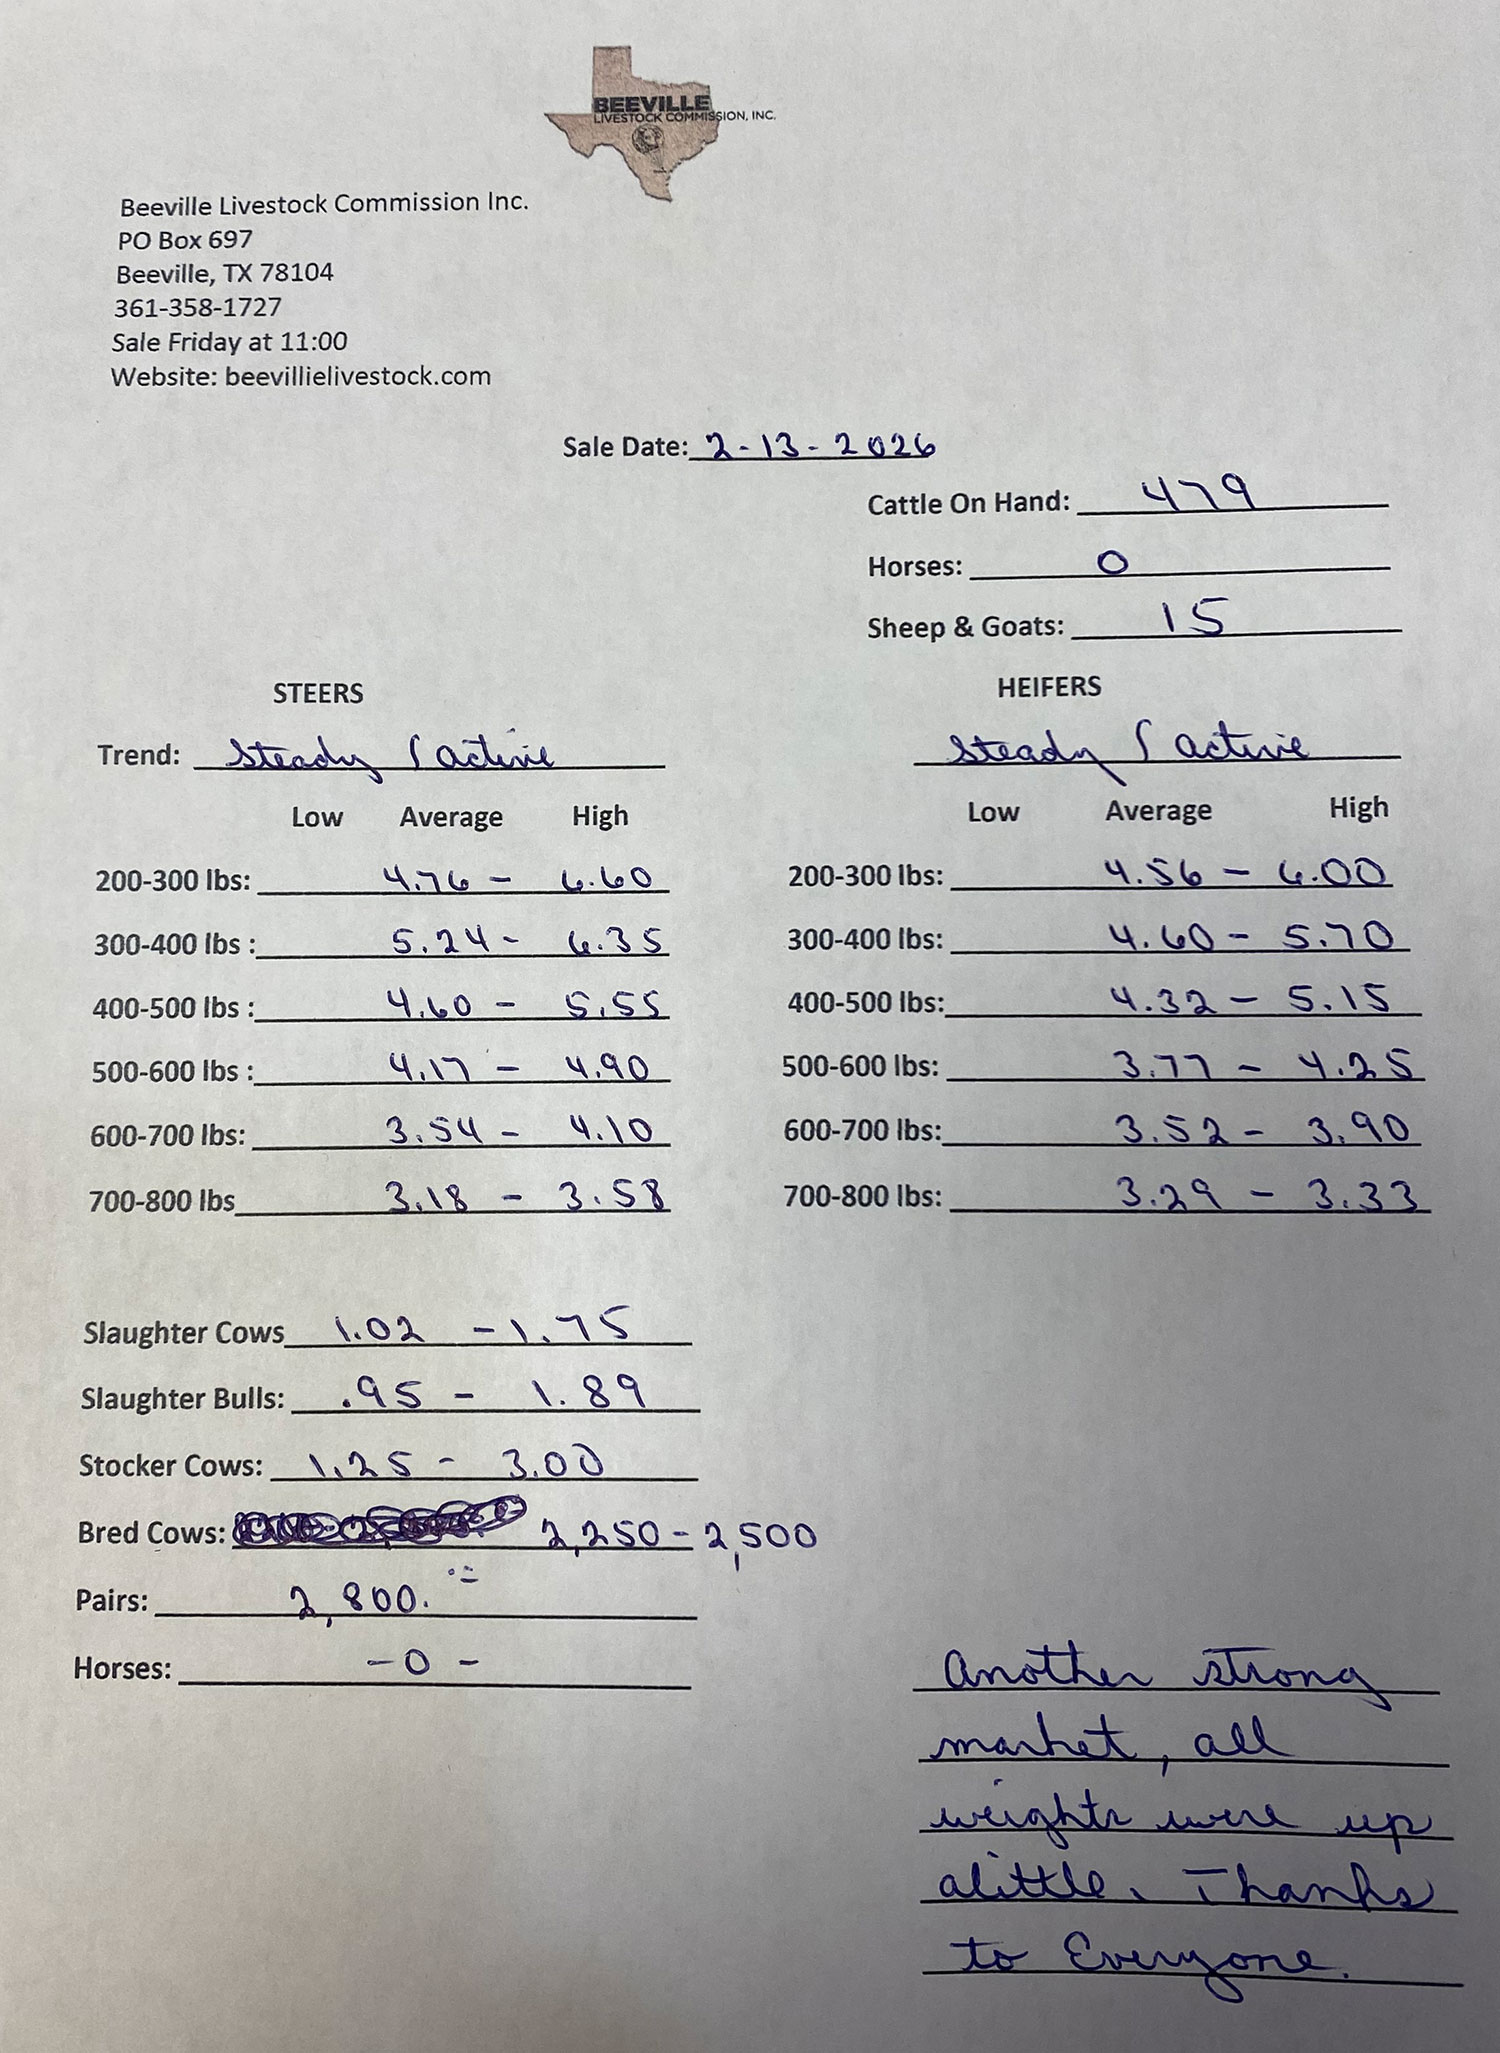 BEEVILLE
LIVESTOCK COMMISSION, INC.
Beeville Livestock Commission Inc.
PO Box 697
Beeville, TX 78104
361-358-1727
Sale Friday at 11:00
Website: beevillielivestock.com
Sale Date: 2-13-2026
Cattle On Hand: 479
Horses: 0
Sheep & Goats: 15
STEERS HEIFERS
Trend: Steady / active Steady / active
Low Average High Low Average High
200-300 lbs: 4.76 - 6.60 200-300 lbs: 4.56 - 6.00
300-400 lbs : 5.24 - 6.35 300-400 lbs: 4.60 - 5.70
400-500 lbs : 4.60 - 5.55 400-500 lbs: 4.32 - 5.15
500-600 lbs : 4.17 - 4.90 500-600 lbs: 3.77 - 4.25
600-700 lbs: 3.54 - 4.10 600-700 lbs: 3.52 - 3.90
700-800 lbs 3.18 - 3.58 700-800 lbs: 3.29 - 3.33
Slaughter Cows 1.02 - 1.75
Slaughter Bulls: .95 - 1.89
Stocker Cows: 1.25 - 3.00
Bred Cows: 2,250 - 2,500
Pairs: 2,800.
Horses: - 0 -
Another strong
market, all
weights were up
alittle. Thanks
to Everyone.